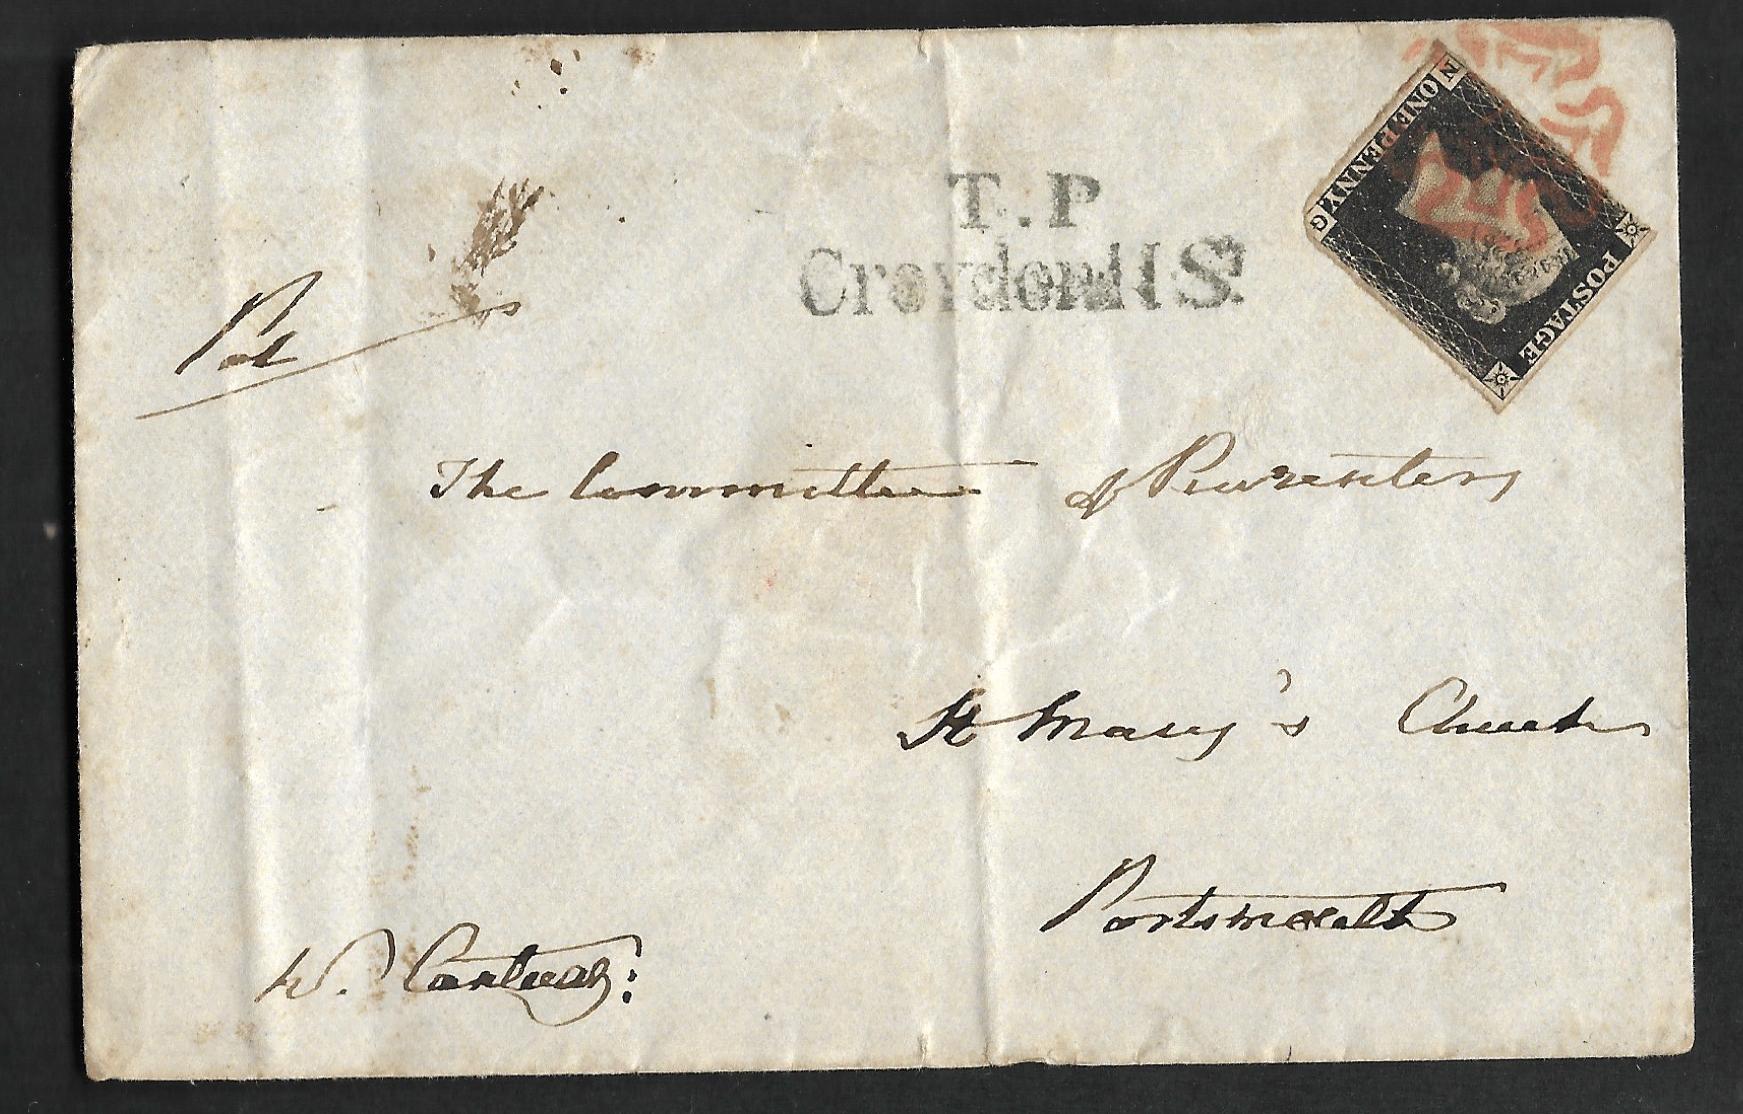 T.P
Croydon H S!
N ONE PENNY G
POSTAGE
Pd
The Committee of Pewrenters
St Mary's Church
Portsmouth
W.